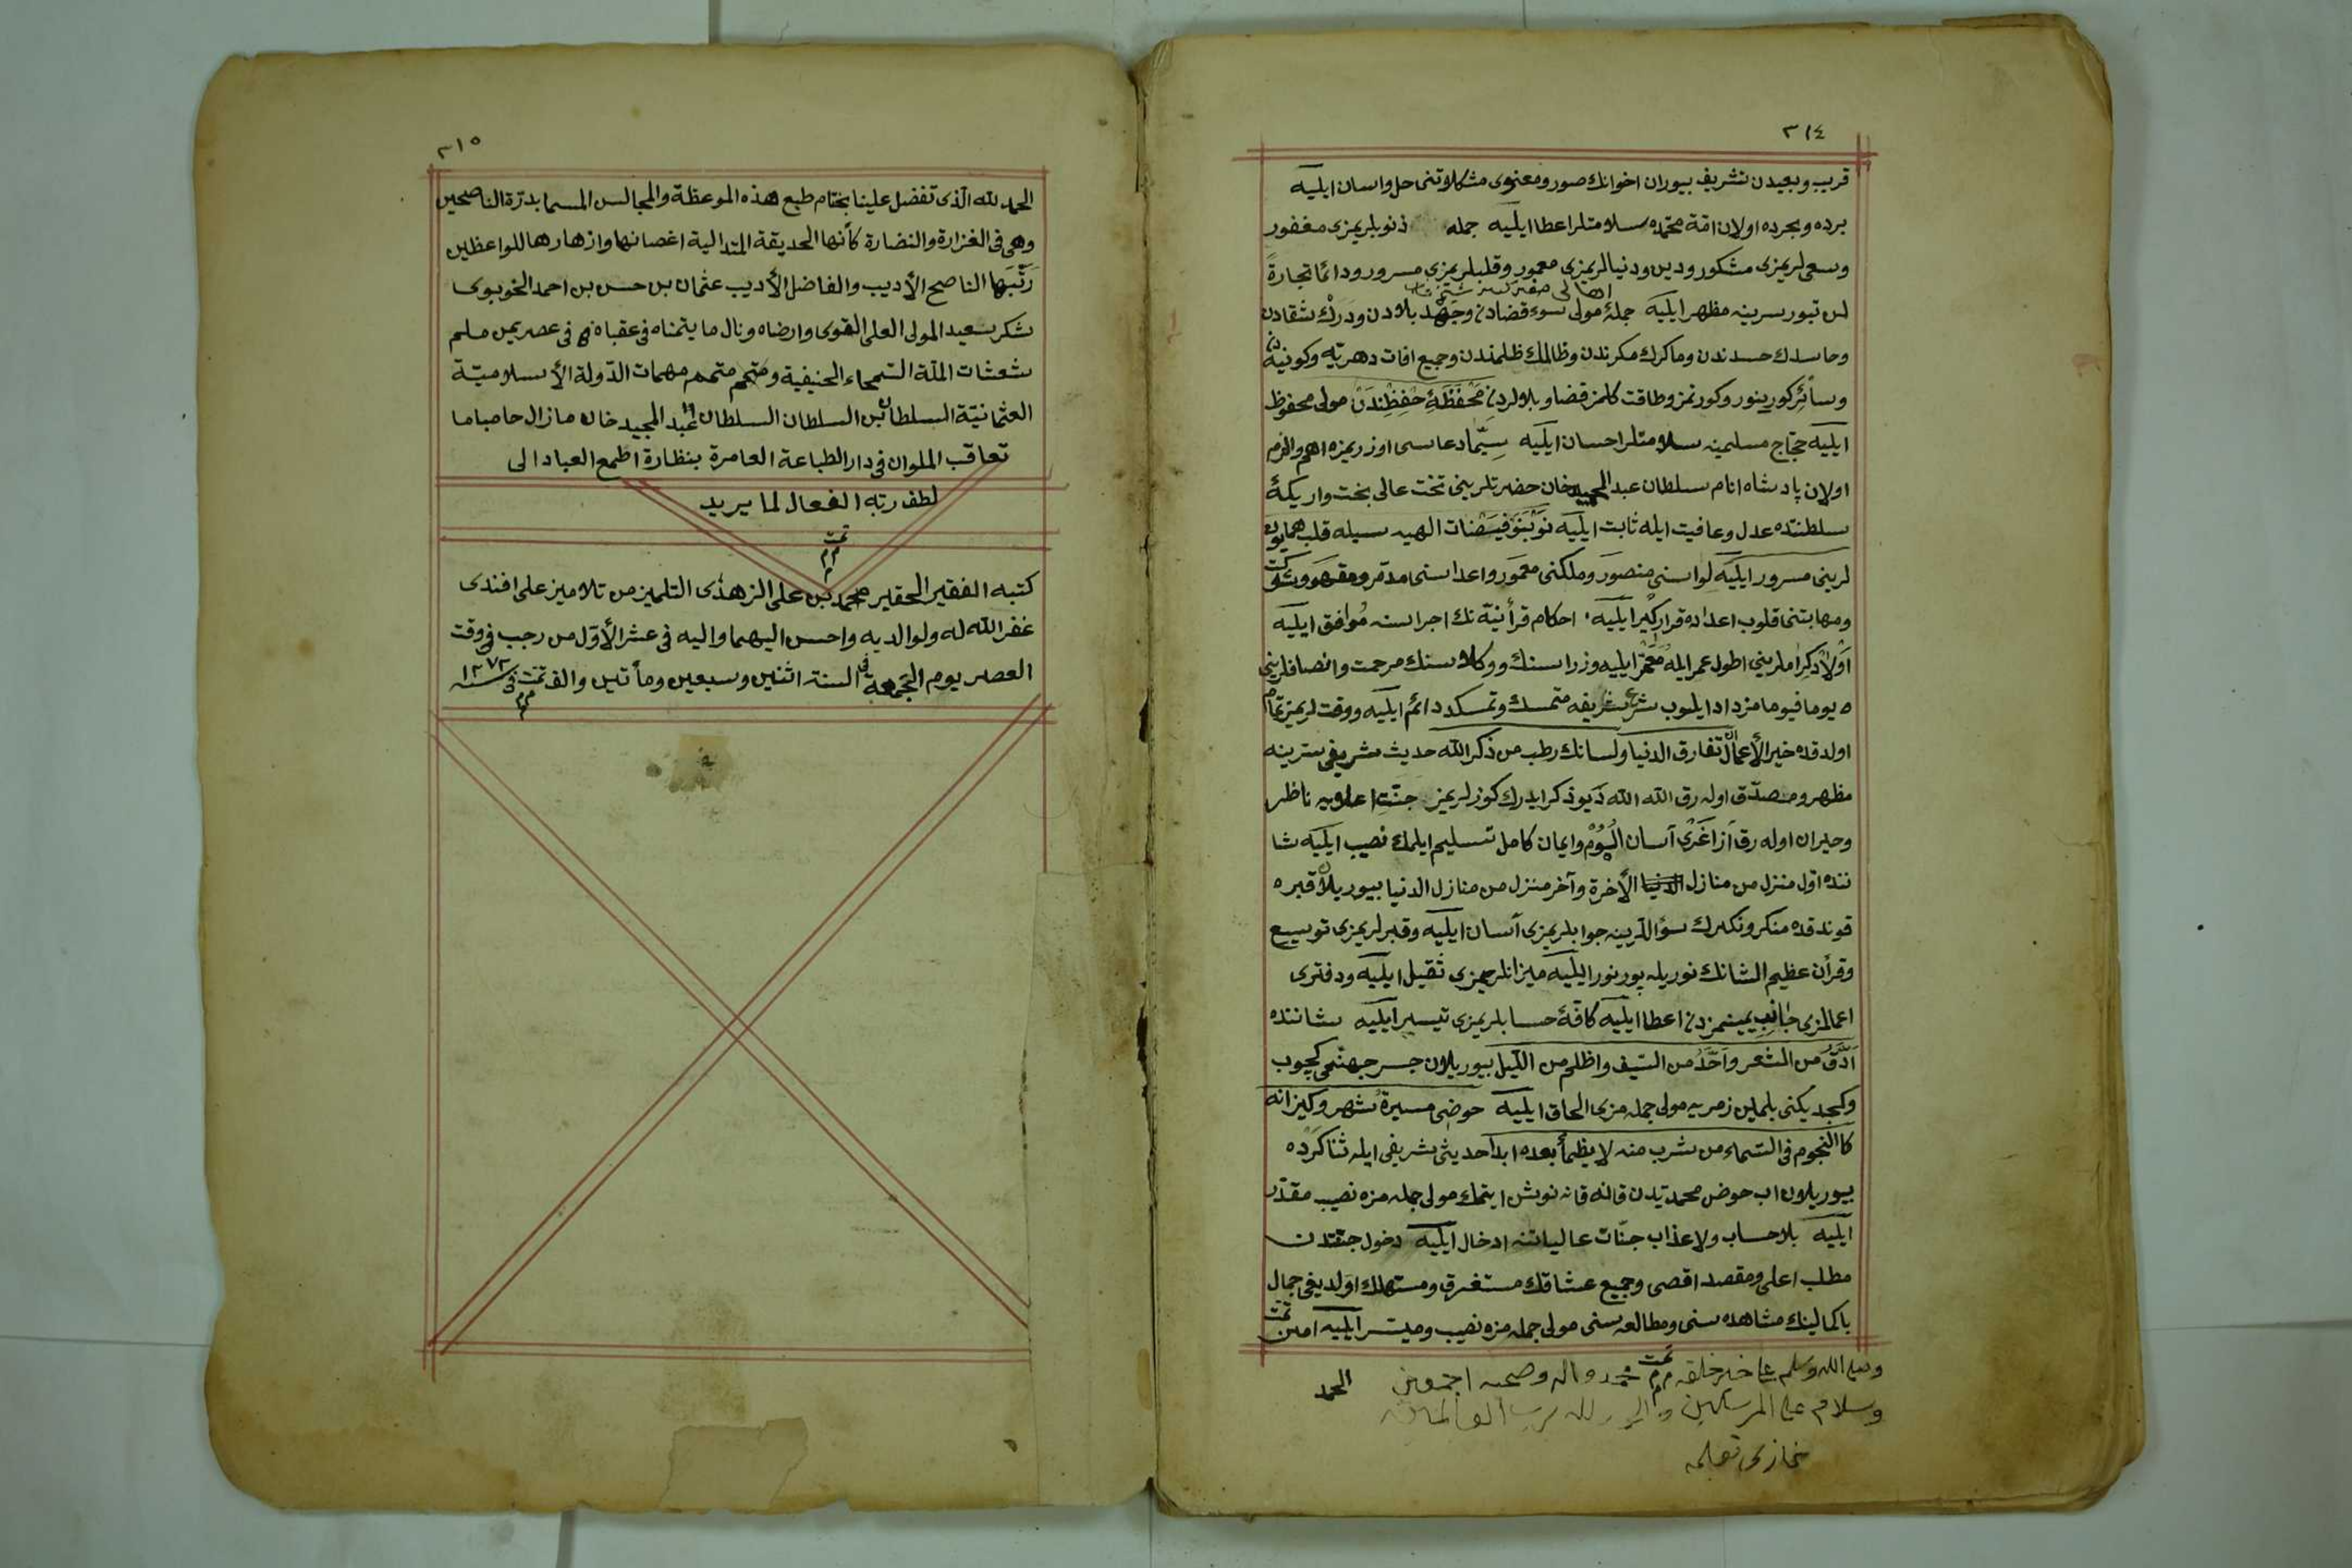 ٣١٤
قريب وبعيدن تشريف بيوران اخوانك صور ومعنوى مشكلاوتنى حل واسان ايليه
برده وبحرده اولان امّة محمّده سلامتلر اعطا ايليه جمله ذنوبلريمزى مغفور
وسعى لريمزى مشكور ودين ودنيالريمزى معمور وقلبلريمزى مسرور ودائما تجارةً
لن تبور سرينه مظهر ايليه جملۀ مولى سوء قضادن وجَهد بلادن ودَرك شقادن
وحاسدك حسدندن وماكرك مكرندن وظالمك ظلمندن وجميع افات دهريّه وكونيه
وسأئر كورينور وكورنمز وطاقت كلمز قضا وبلالردن مَحْفَظَهِٔ حِفْظِنْدَنْ مولى محفوظ
ايليه حجّاج مسلمينه سلامتلر احسان ايليه سِيَّما دعاسى اوزريمزه اهم والزم
اولان پادشاه انام سلطان عبد المجيد خان حضرتلرينى تخت عالى بخت واريكۀ
سلطنتده عدل وعافيت ايله ثابت ايليه فيضنات الهيه سيله قلب همايون
لرينى مسرور ايليه لواسنى منصور وملكنى معمور واعداسنى مدمّر ومقهور
ومهابتنى قلوب اعداده قراركير ايليه احكام قرأنيّه نك اجراسنه مُوافق ايليه
اولادكرامارينى اطول عمر ايله مُعَمَّر ايليه وزراسنك ووكلاسنك مرحمت وانصافلرينى
يوما فيوما مزداد ايلوب شرع شريفه متمسك وتمسكدد دائم ايليه ووقت لريمز تمام
اولدقده خير الأعمال ان تفارق الدنيا ولسانك رطب من ذكر الله حديث شريفى سرينه
مظهر ومصدّق اوله رق الله الله ديو ذكر ايدرك كوزلريمز جنّت اعلايه ناظر
وحيران اوله رق آسان وايمان كامل تسليم ايلمك نصيب ايليه شا
ننده اوّل منزل من منازل الأخرة وآخر منزل من منازل الدنيا بيوريلان قبره
قوندقده منكر ونكيرك سؤاللرينه جوابلريمزى آسان ايليه وقبرلريمزى توسيع
وقرأن عظيم الشانك نوريله پور نور ايليه ميزانلريمزى ثقيل ايليه ودفترى
اعمالمزى جانب يمينمزدن اعطا ايليه كافۀ حسابلريمزى تيسير ايليه شاننده
اَدَقُّ من الشعر واَحَدُّ من السّيف واظلم من اللّيل بيوريلان جسر جهنّمى كچوب
وكچديكنى بلملين زمريه مولى جمله مزى الحاق ايليه حوضى مسيرة شهر وكيزانه
كاالنجوم فى السّماء من شرب منه لا يظمأ بعده ابداً حديث شريفى ايله ثناكرده
بيوريلان اب حوض محمديّدن قانه قانه نوش ايتمك مولى جمله مزه نصيب مقدّر
ايليه بلا حساب ولا عذاب جنّات عالياتنه ادخال ايليه دخول جنّتدن
مطلب اعلى ومقصد اقصى وجميع عشاقك مستغرق ومستهلك اولديغى جمال
باكمالينك مشاهده سنى ومطالعه سنى مولى جمله مزه نصيب وميسّر ايليه امين تمت
وصلى الله وسلم على خير خلقه محمد واله وصحبه اجمعين
الحمد
وسلام على المرسلين والحمد لله رب العالمين
٣١٥
الحمد لله الّذى تفضل علينا بختام طبع هذه الموعظة والمجالس المسما بدرّة الناصحين
وهى فى الغزارة والنضارة كأنها الحديقة المتدالية اغصانها وازهارها للواعظين
رَتَّبَها الناصح الأديب والفاضل الأديب عثمان بن حسن بن احمد الخوبوى
شكر سعيه المولى العلى القوى وارضاه ونال ما يتمناه فى عقباه فى عصر يمن ملم
شعشات الملّة السّمحاء الحنيفية ومتمم مهمات الدّولة الأسلاميّة
العثمانيّة السلطان بن السلطان السلطان عبد المجيد خان مازال حاصباما
تعاقب الملوان فى دار الطباعة العامرة بنظارة اطمع العباد الى
لطف ربّه الفعال لما يريد
تمت
كتبه الفقير الحقير محمد بن على الزهدى التلميز من تلاميز على افندى
غفر الله له ولوالديه واحسن اليهما واليه فى عشر الأوّل من رجب فى وقت
العصر يوم الجمعة فى السنة اثنين وسبعين ومأتين والف تمت فى سنه ١٢٧٢